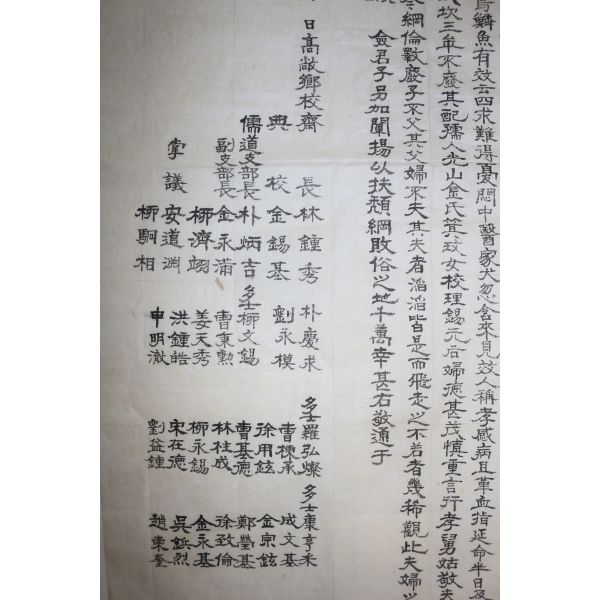 與鱗魚有效云四求難得憂悶中醫家犬忽含來見效人稱孝感病且革血指延命半日及
坎三年不廢其配孺人光山金氏箕玟女校理錫元后婦德甚茂愼重言行孝舅姑敬夫
綱倫斁廢子不父其父婦不夫其夫者滔滔皆是而飛走之不若者幾稀觀此夫婦之
僉君子另加闡揚以扶頹綱敗俗之地千萬幸甚右敬通于
日高敞鄕校齋長林鍾秀 朴慶求 多士羅弘燦 多士康亨禾
典校金錫基 劉永模 曺棟承 成文基
儒道支部長朴炳吉 多士柳文錫 徐用鉉 金宗鉉
副支部長金永蒲 曺東勳 曺基德 鄭瑩基
柳濟翊 姜天秀 林柱成 徐致倫
掌議安道淵 洪鍾皓 柳永錫 金永基
柳駒相 申明澈 宋在德 吳鉦烈
劉益鍾 趙東奎